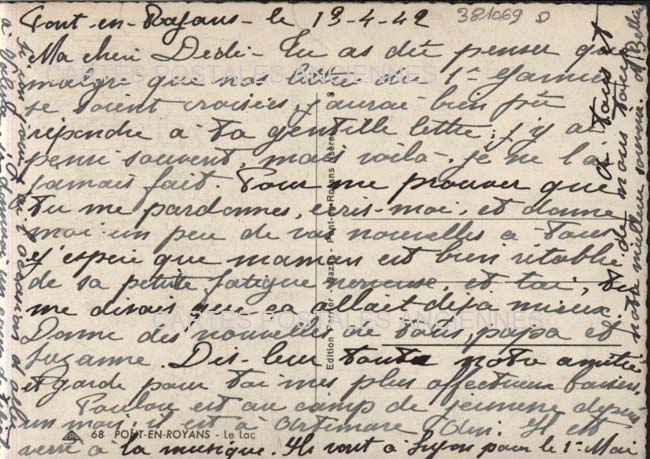 Pont-en-Royans - le 19-4-42
381069 D
Ma chère Dédé - Tu as dû penser que
malgré que nos lettres du 1er Janvier
se soient croisées, j'aurai bien pu
répondre à ta gentille lettre; j'y ai
pensé souvent, mais voilà - je ne l'ai
jamais fait. Pour me prouver que
tu me pardonnes, écris-moi, et donne
moi un peu de vos nouvelles à tous
J'espère que maman est bien rétablie
de sa petite fatigue nerveuse, et toi, tu
me disais que ça allait déjà mieux.
Donne des nouvelles de tous, papa et
Suzanne. Dis-leur toute notre amitié
et garde pour toi mes plus affectueux baisers.
Loulou est au camp de jeunesse depuis
un mois, il est à Artemare (Ain). Il est
versé à la musique. Ils vont à Lyon pour le 1er Mai
à tous
de nous tous
notre meilleur souvenir
CARTES POSTALES ANCIENNES
CARTES POSTALES ANCIENNES
Edition
Pont-en-Royans (Isère)
68 PONT-EN-ROYANS - Le Lac